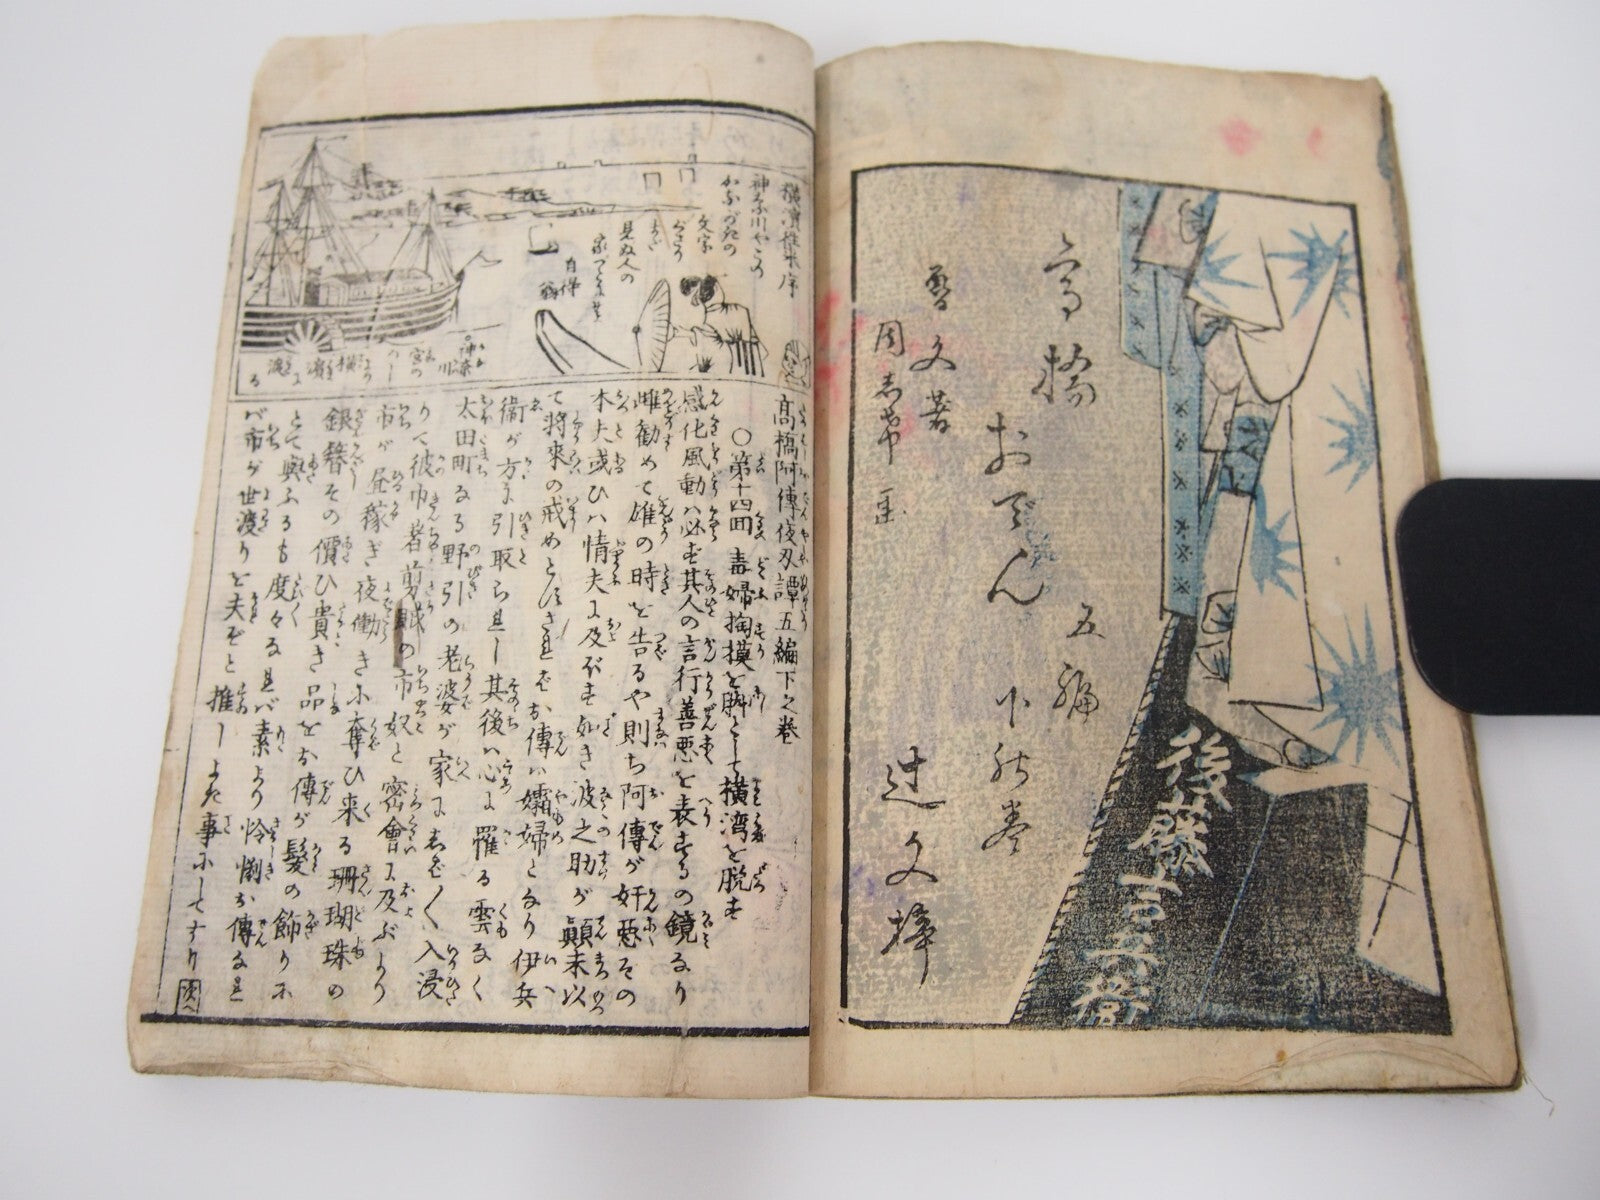 高橋
おでん
五編
下の巻
魯文著
周志中画
辻文梓
後藤吉五衛
横濱集序
神奈川やその
かながきの
文字
見ぬ人の
家づとに
神奈川
横濱
高橋阿傳夜刃譚五編下之巻
○第十四回 毒婦掏摸を脚として横湾を脱す
感化風動ハ必ず其人の言行善悪を表するの鏡なり
雌勧めて雄の時を告るや則ち阿傳が奸悪その
本夫或ひハ情夫に及ぼす如き波之助が顛末以
て將來の戒めとすべきなれどお傳ハ孀婦となり伊兵
衛が方に引取られし其後ハ心に罹る雲なく
太田町なる野引の老婆が家にしば〳〵入浸
りて彼巾著剪賊の市奴と密會に及ぶより
市が昼稼ぎ夜働きに奪ひ来る珊瑚珠の
銀簪その價ひ貴き品をお傳が髪の飾りに
とて與ふるも度々なれバ素より怜悧お傳なれ
バ市が世渡りを夫ぞと推しよた事にしてすり
次へ